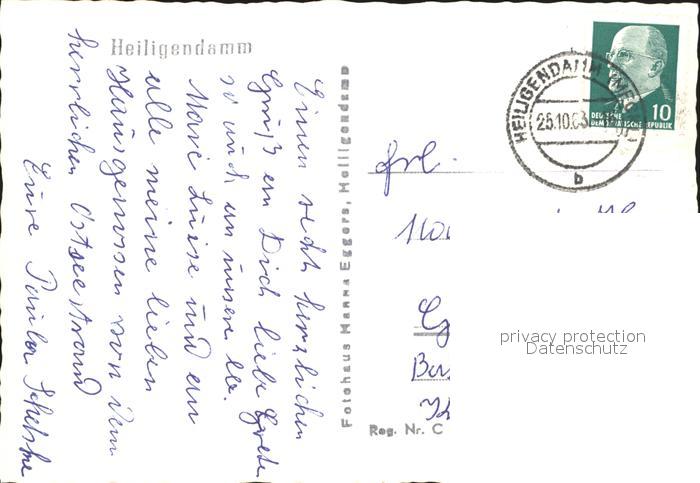 Heiligendamm
Einen recht herzlichen
Gruß an Dich liebe Grete
so auch an unsere lb.
Marie Luise und an
alle meine lieben
Hausgenossen von dem
herrlichen Ostseestrand
Eure Paula
Fotohaus Manna Eggers, Heiligendamm
HEILIGENDAMM
25.10.63
b
10
DEUTSCHE
DEMOKRATISCHE REPUBLIK
Frl.
privacy protection
Datenschutz
Reg. Nr. C